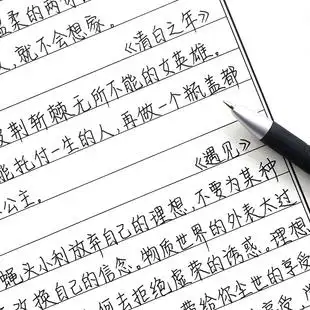 温柔的两
,就不会想家。
《清白之年》
披荆斩棘无所不能的女英雄。
能托付一生的人,再做一个瓶盖都
公主。
《遇见》
放弃自己的理想,不要为某种
蝇头小利
改换自己的信念。物质世界的外表太过
何去拒绝虚荣的诱惑。理想
带给你尘世的享受
享受,